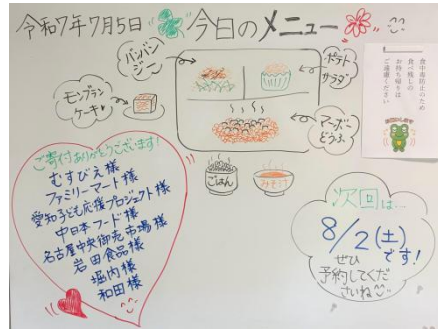 令和7年7月5日 今日のメニュー
バンバン
ジー
ポテト
サラダ
モンブラン
ケーキ
マーボー
どうふ
ごはん
みそ汁
食中毒防止のため
食べ残しの
お持ち帰りは
ご遠慮ください
ご寄付ありがとうございます!
むすびえ様
ファミリーマート様
愛知子ども応援プロジェクト様
中日本フード様
名古屋中央卸売市場様
岩田食品様
堀内様
和田様
次回は…
8/2(土)
です!
ぜひ
予約してくだ
さいね